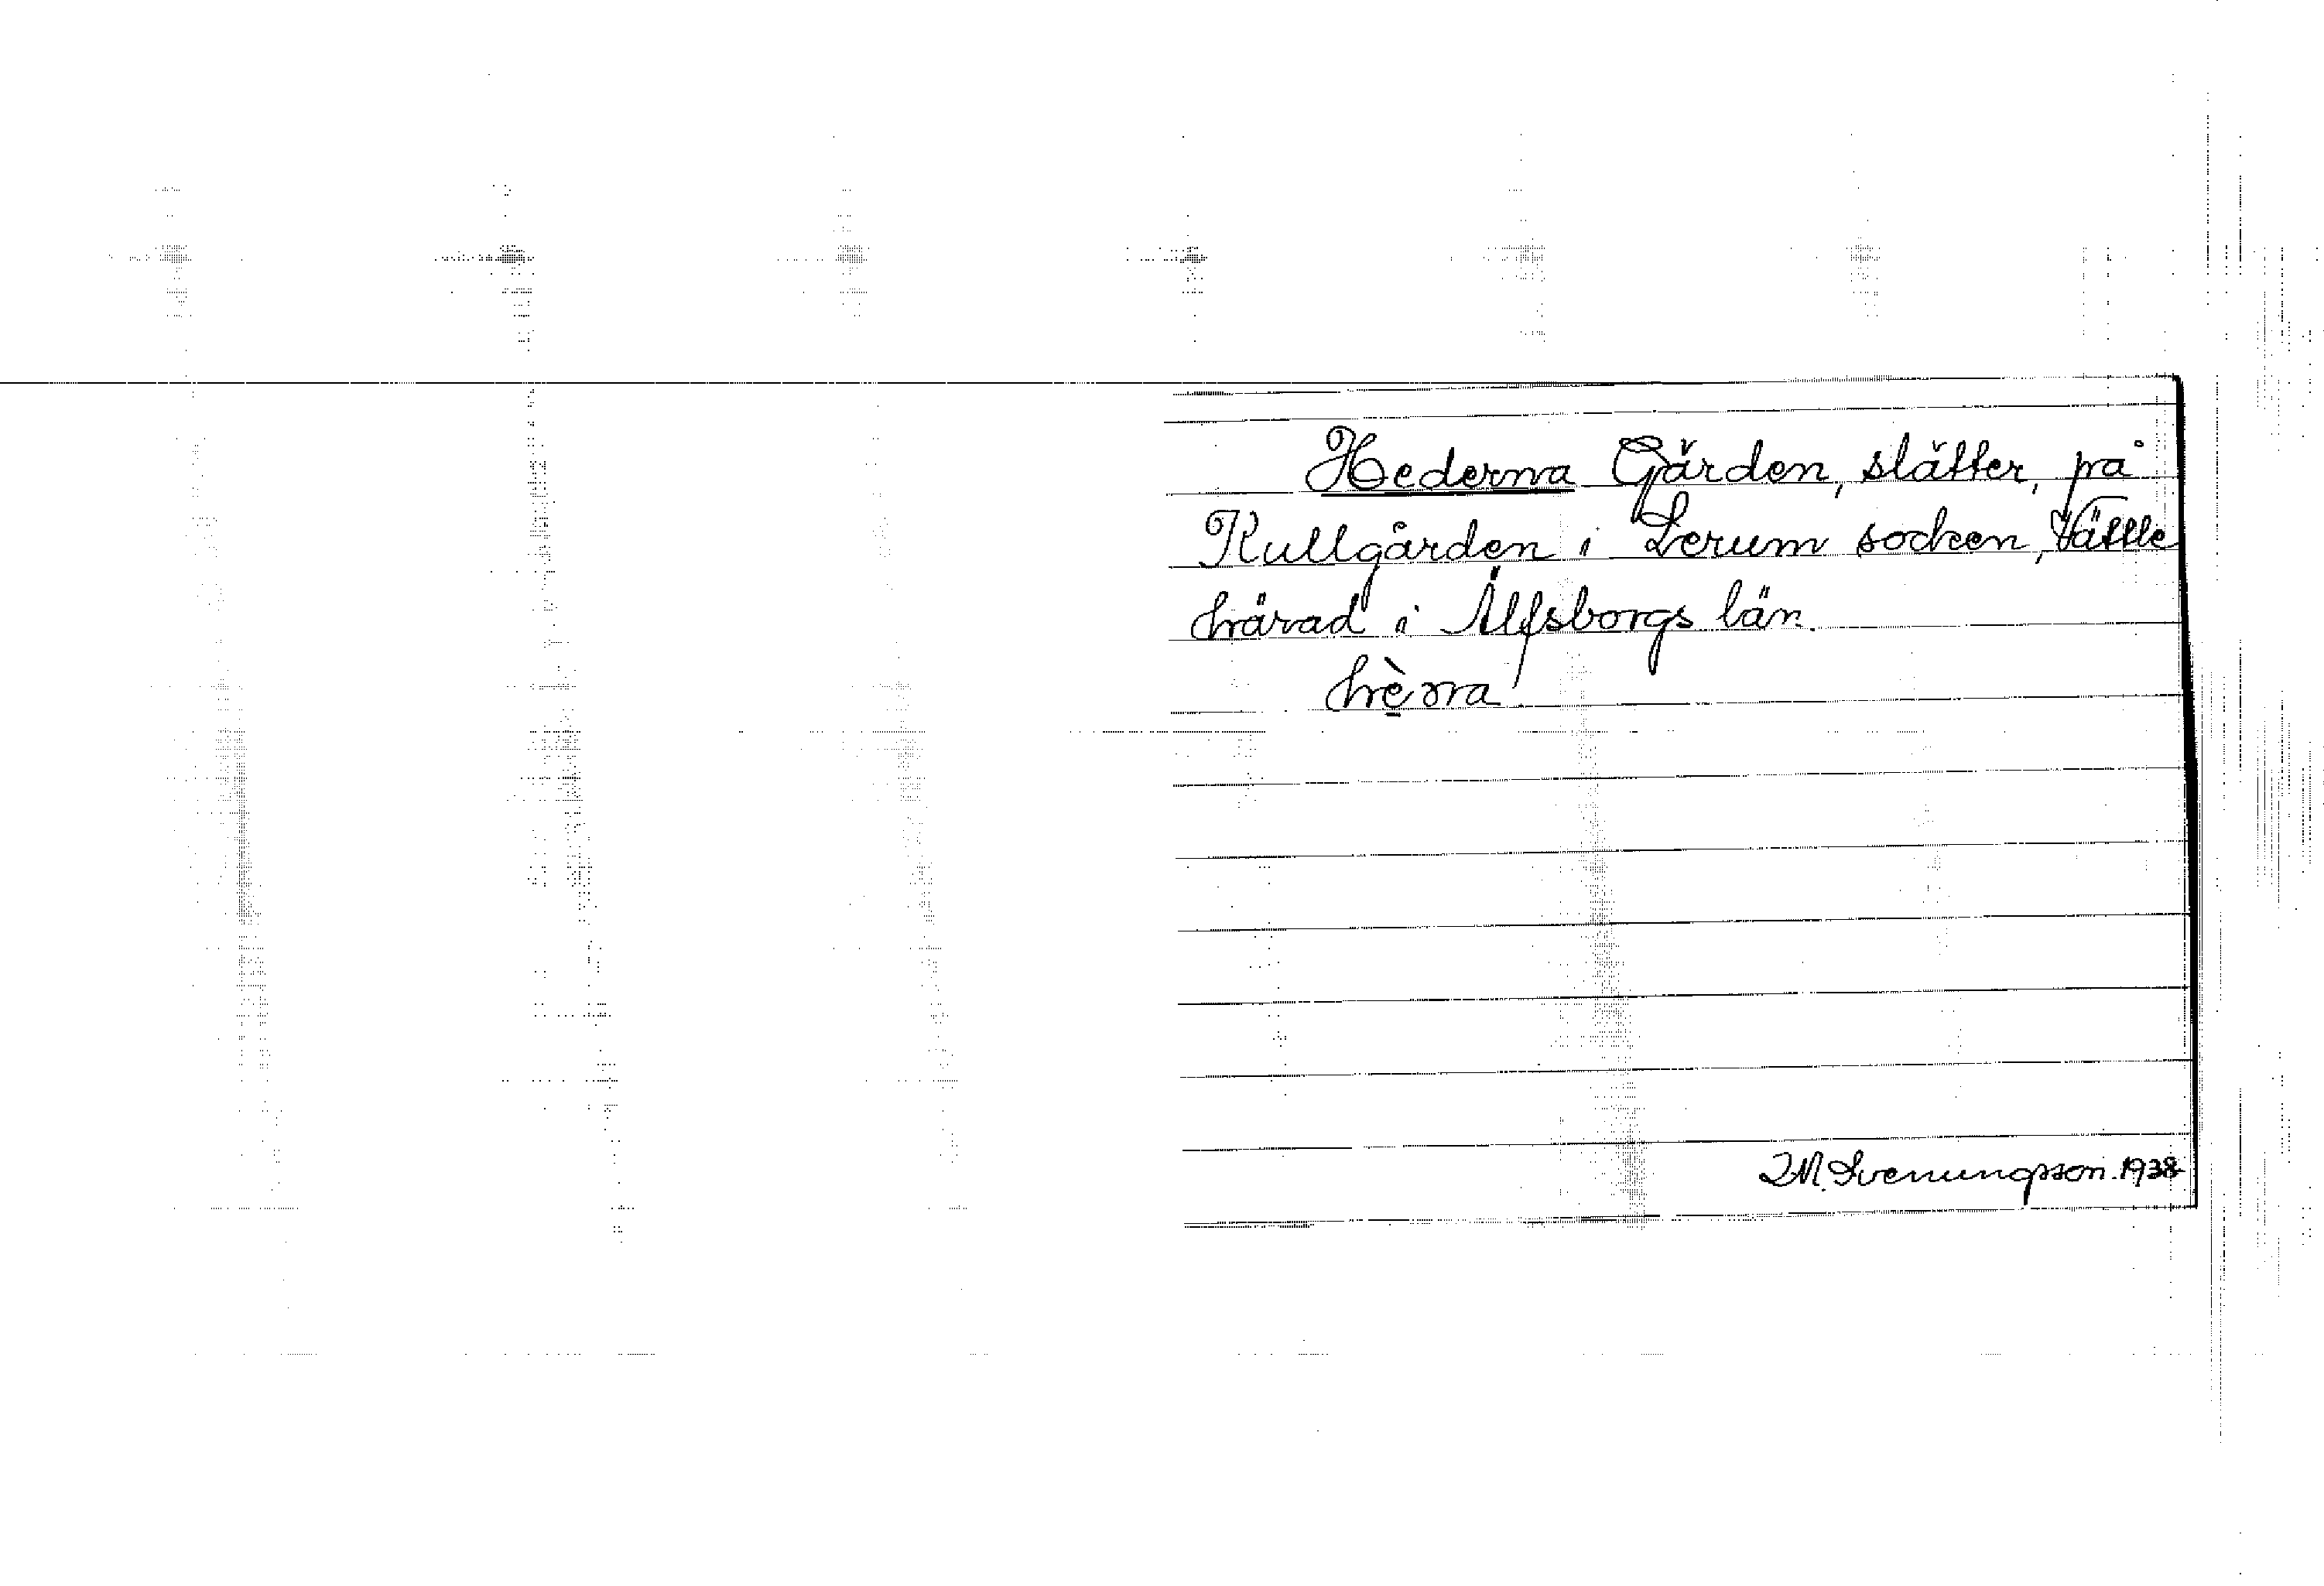 Hederna Gärden, slätter, på
Kullgården i Lerum socken, Vättle
härad i Älfsborgs län.
hè̱ꝛra
I.M. Svenungsson. 1938